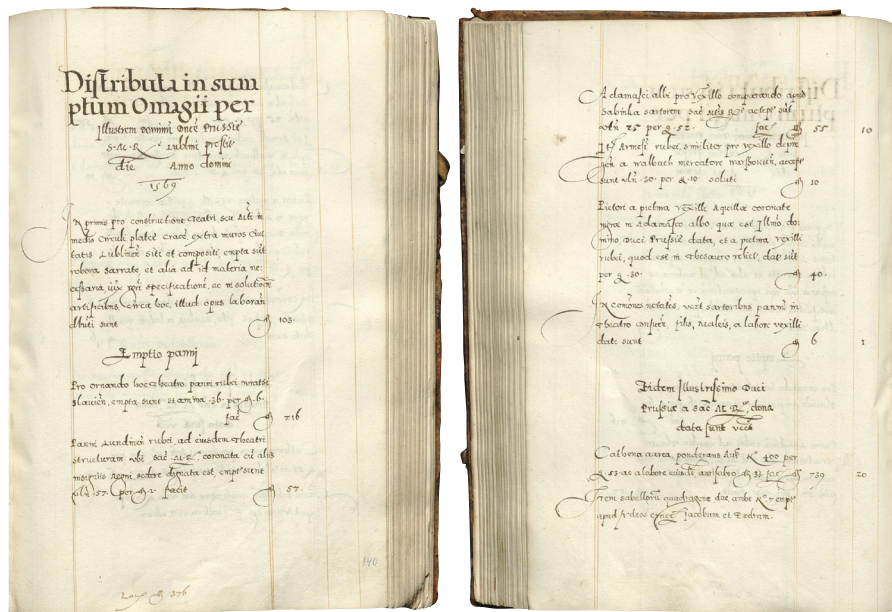 Distributa in sum
ptum Omagii per
Illustrem dominum Ducem Prussie
S. M. R. Lublini prestit
die Anno domini
1569
In primis pro constructione theatri seu
medio Circuli platee extra muros Civi
tatis Lublinen siti et compositi, empta sut
robora sarrata, et alia ad id materia ne:
cessaria, iux specificationem, ac in solutione
artificibus circa hoc, illud opus laboran
103.
Emptio panni
Pro ornando hoc theatro, panni rubei
empta sunt stamina .36. per 6.
fac 216
Panni Lundinen rubei, ad eiusdem theatri
structuram ubi Sac. M. R. coronata cum aliis
Regni, sedere dignata est, empte sunt
uln 57. per 1. facit 57.
140
376
Adamasci albi pro vexillo comparando apud
Sabinka sartorem Sac. Mtis R. accept sut
uln 25 per g. 52. fac 55 10
It Armesi rubei, similiter pro vexillo
a mercatore accept
sunt uln .30. per g. 10 soluti 10
Pictori a pictura vexilli Aquillae coronate
nigrae in Adamasco albo, quae est Illmo do:
mino Duci Prussie data, et a pictura vexilli
rubei, quod est in thesauro relict, dat sut
per g .30. 40.
In coes necates, sartoribus panni in
theatro filis, a labore vexilli
date sunt 6 1
Eidem Illustrissimo Duci
Prussiae a Sac. M. R. dona
data sunt
Cathena aurea, ponderans No 400 per
g. 53. ac a labore aurifabro 32 fac 739 20
Item sabellorum quadragene due
apud Jacobum et